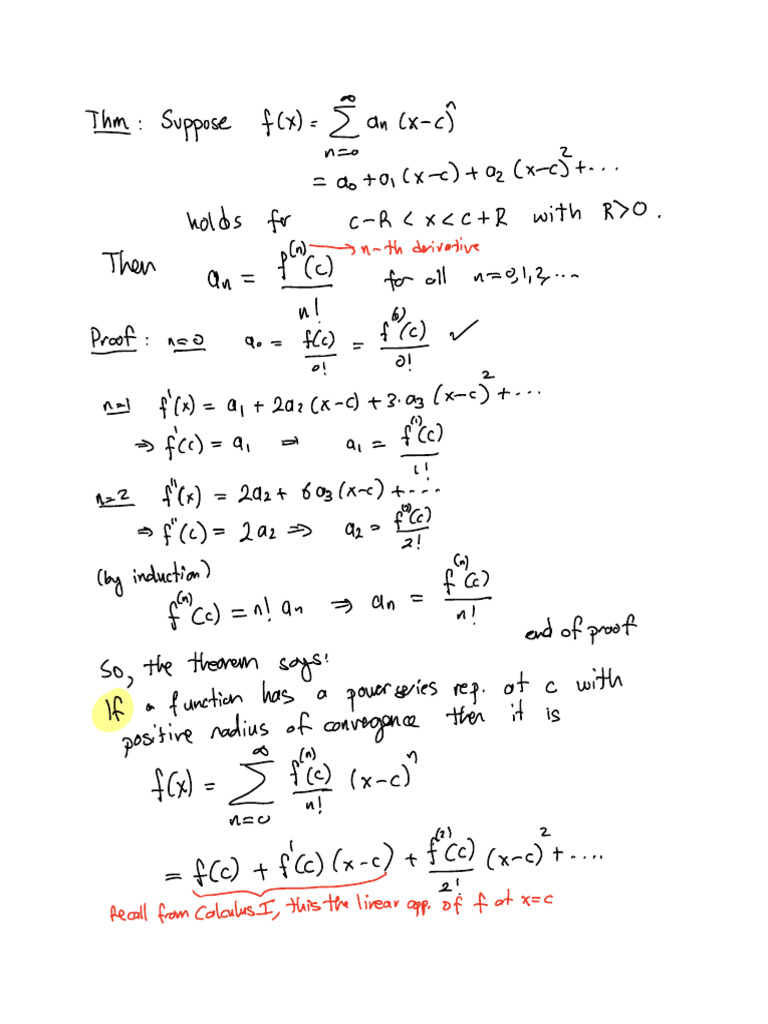 Thm: Suppose f(x) = ∑_{n=0}^{∞} an (x-c)^n
= a0 + a1 (x-c) + a2 (x-c)^2 + ...
holds for c-R < x < c+R with R>0.
→ n-th derivative
Then an = f^(n)(c) / n! for all n=0,1,2, ...
Proof: n=0 a0 = f(c)/0! = f^(0)(c)/0! ✓
n=1 f'(x) = a1 + 2a2 (x-c) + 3·a3 (x-c)^2 + ...
⇒ f'(c) = a1 ⇒ a1 = f^(1)(c)/1!
n=2 f''(x) = 2a2 + 6a3 (x-c) + ...
⇒ f''(c) = 2a2 ⇒ a2 = f^(2)(c)/2!
(by induction)
f^(n)(c) = n! an ⇒ an = f^(n)(c)/n!
end of proof
So, the theorem says:
If a function has a power series rep. at c with
positive radius of convegence then it is
f(x) = ∑_{n=0}^{∞} f^(n)(c)/n! (x-c)^n
= f(c) + f'(c) (x-c) + f^(2)(c)/2! (x-c)^2 + ....
Recall from Calculus I, this the linear app. of f at x=c